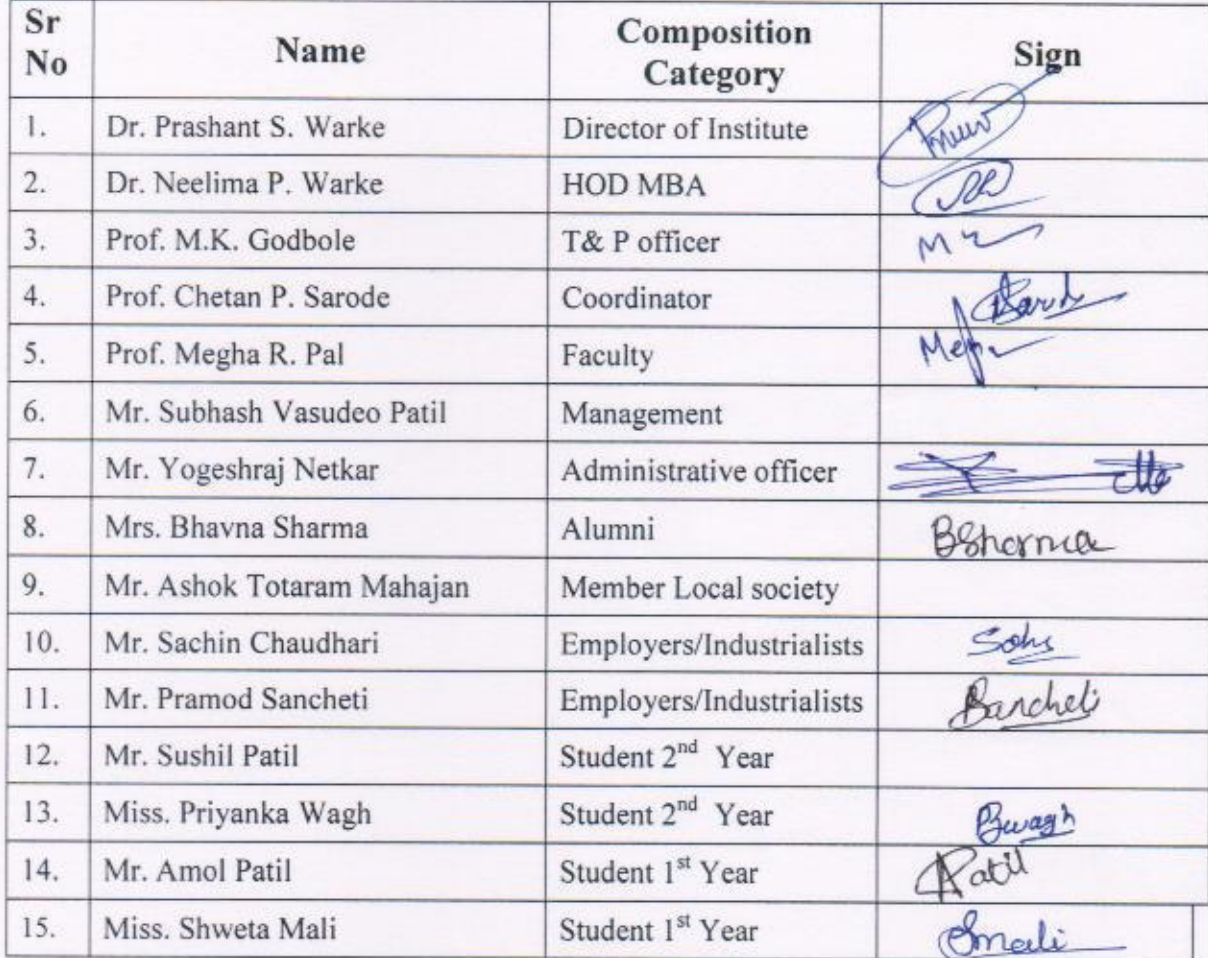 Sr No Name Composition Category Sign
1. Dr. Prashant S. Warke Director of Institute
2. Dr. Neelima P. Warke HOD MBA
3. Prof. M.K. Godbole T& P officer
4. Prof. Chetan P. Sarode Coordinator
5. Prof. Megha R. Pal Faculty
6. Mr. Subhash Vasudeo Patil Management
7. Mr. Yogeshraj Netkar Administrative officer
8. Mrs. Bhavna Sharma Alumni BSharma
9. Mr. Ashok Totaram Mahajan Member Local society
10. Mr. Sachin Chaudhari Employers/Industrialists
11. Mr. Pramod Sancheti Employers/Industrialists Sancheti
12. Mr. Sushil Patil Student 2nd Year
13. Miss. Priyanka Wagh Student 2nd Year Pwagh
14. Mr. Amol Patil Student 1st Year APatil
15. Miss. Shweta Mali Student 1st Year Smali